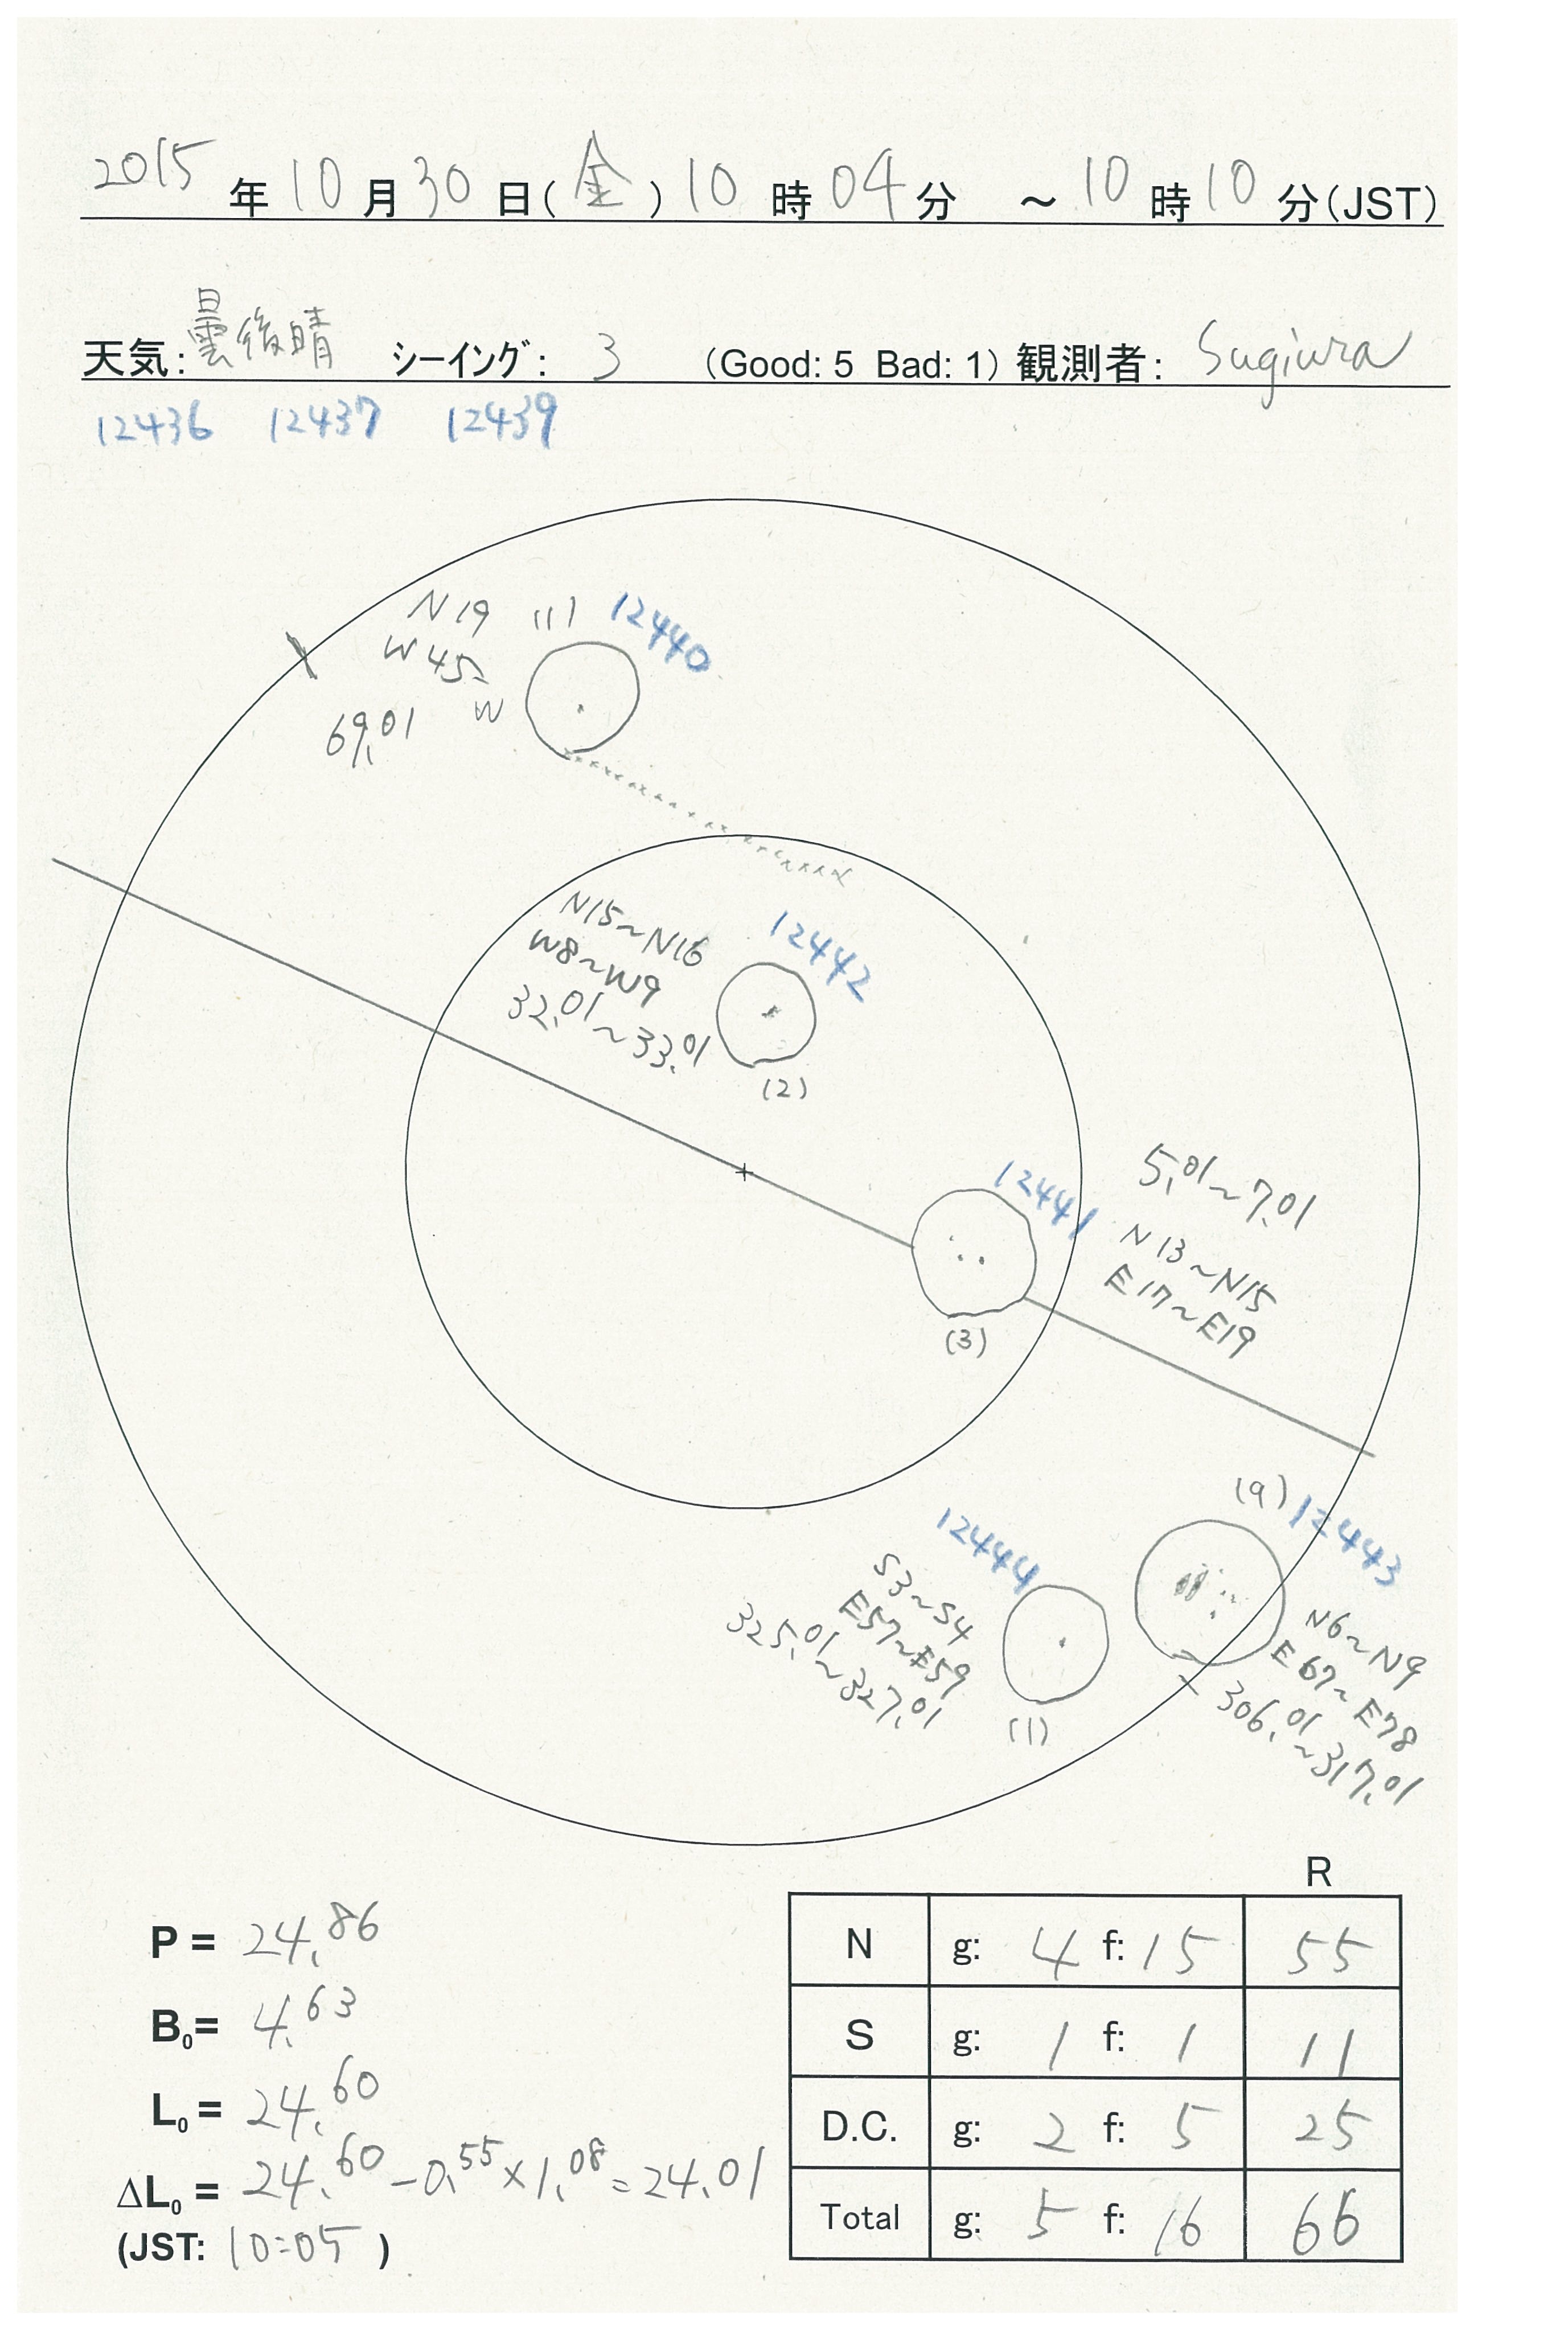 2015年10月30日(金)10時04分 ～10時10分(JST)
天気:曇後晴 シーイング: 3 (Good: 5 Bad: 1) 観測者: Sugiura
12436 12437 12439
N19 (1) 12440
W45
W
69.01
N15~N16
W8~W9
32.01~33.01
12442
(2)
12441
5.01~7.01
N13~N15
E17~E19
(3)
(9) 12443
N6~N9
E67~E78
306.01~317.01
12444
S3~S4
E57~E59
325.01~327.01
(1)
R
P = 24.86
B0= 4.63
L0 = 24.60
ΔL0 = 24.60-0.55×1.08=24.01
(JST: 10:05 )
N g: 4 f: 15 55
S g: 1 f: 1 11
D.C. g: 2 f: 5 25
Total g: 5 f: 16 66